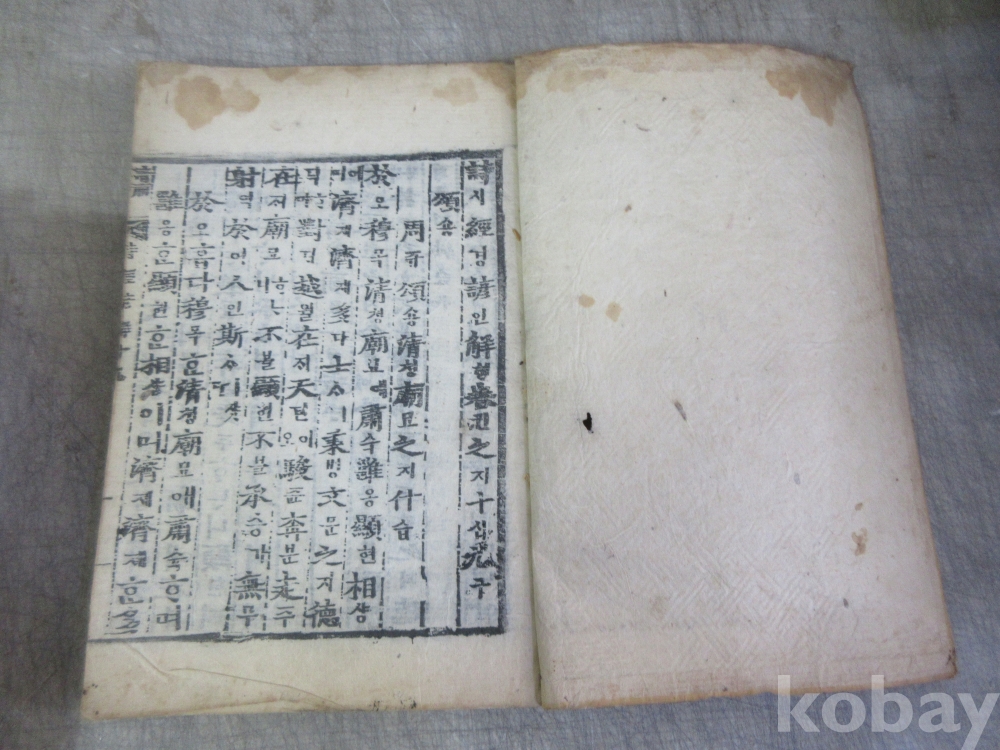 詩시經경諺언解ᄒᆡ卷권之지十십九구
頌숑
周쥬頌숑淸쳥廟묘之지什습
於오穆목淸쳥廟묘애肅슉雝옹顯현相샹
이여濟졔濟졔多다士ᄉᆞㅣ秉병文문之지德
덕ᄒᆞ야對ᄃᆡ越월在ᄌᆡ天텬이오駿쥰奔분走주
在ᄌᆡ廟묘ᄒᆞᄂᆞ니不블顯현不블承승가無무
射역於어人인斯ᄉᆞㅣ샷다
於오홉다穆목ᄒᆞᆫ淸쳥廟묘애肅슉ᄒᆞ며
雝옹ᄒᆞᆫ顯현ᄒᆞᆫ相샹이며濟졔濟졔ᄒᆞᆫ多
kobay